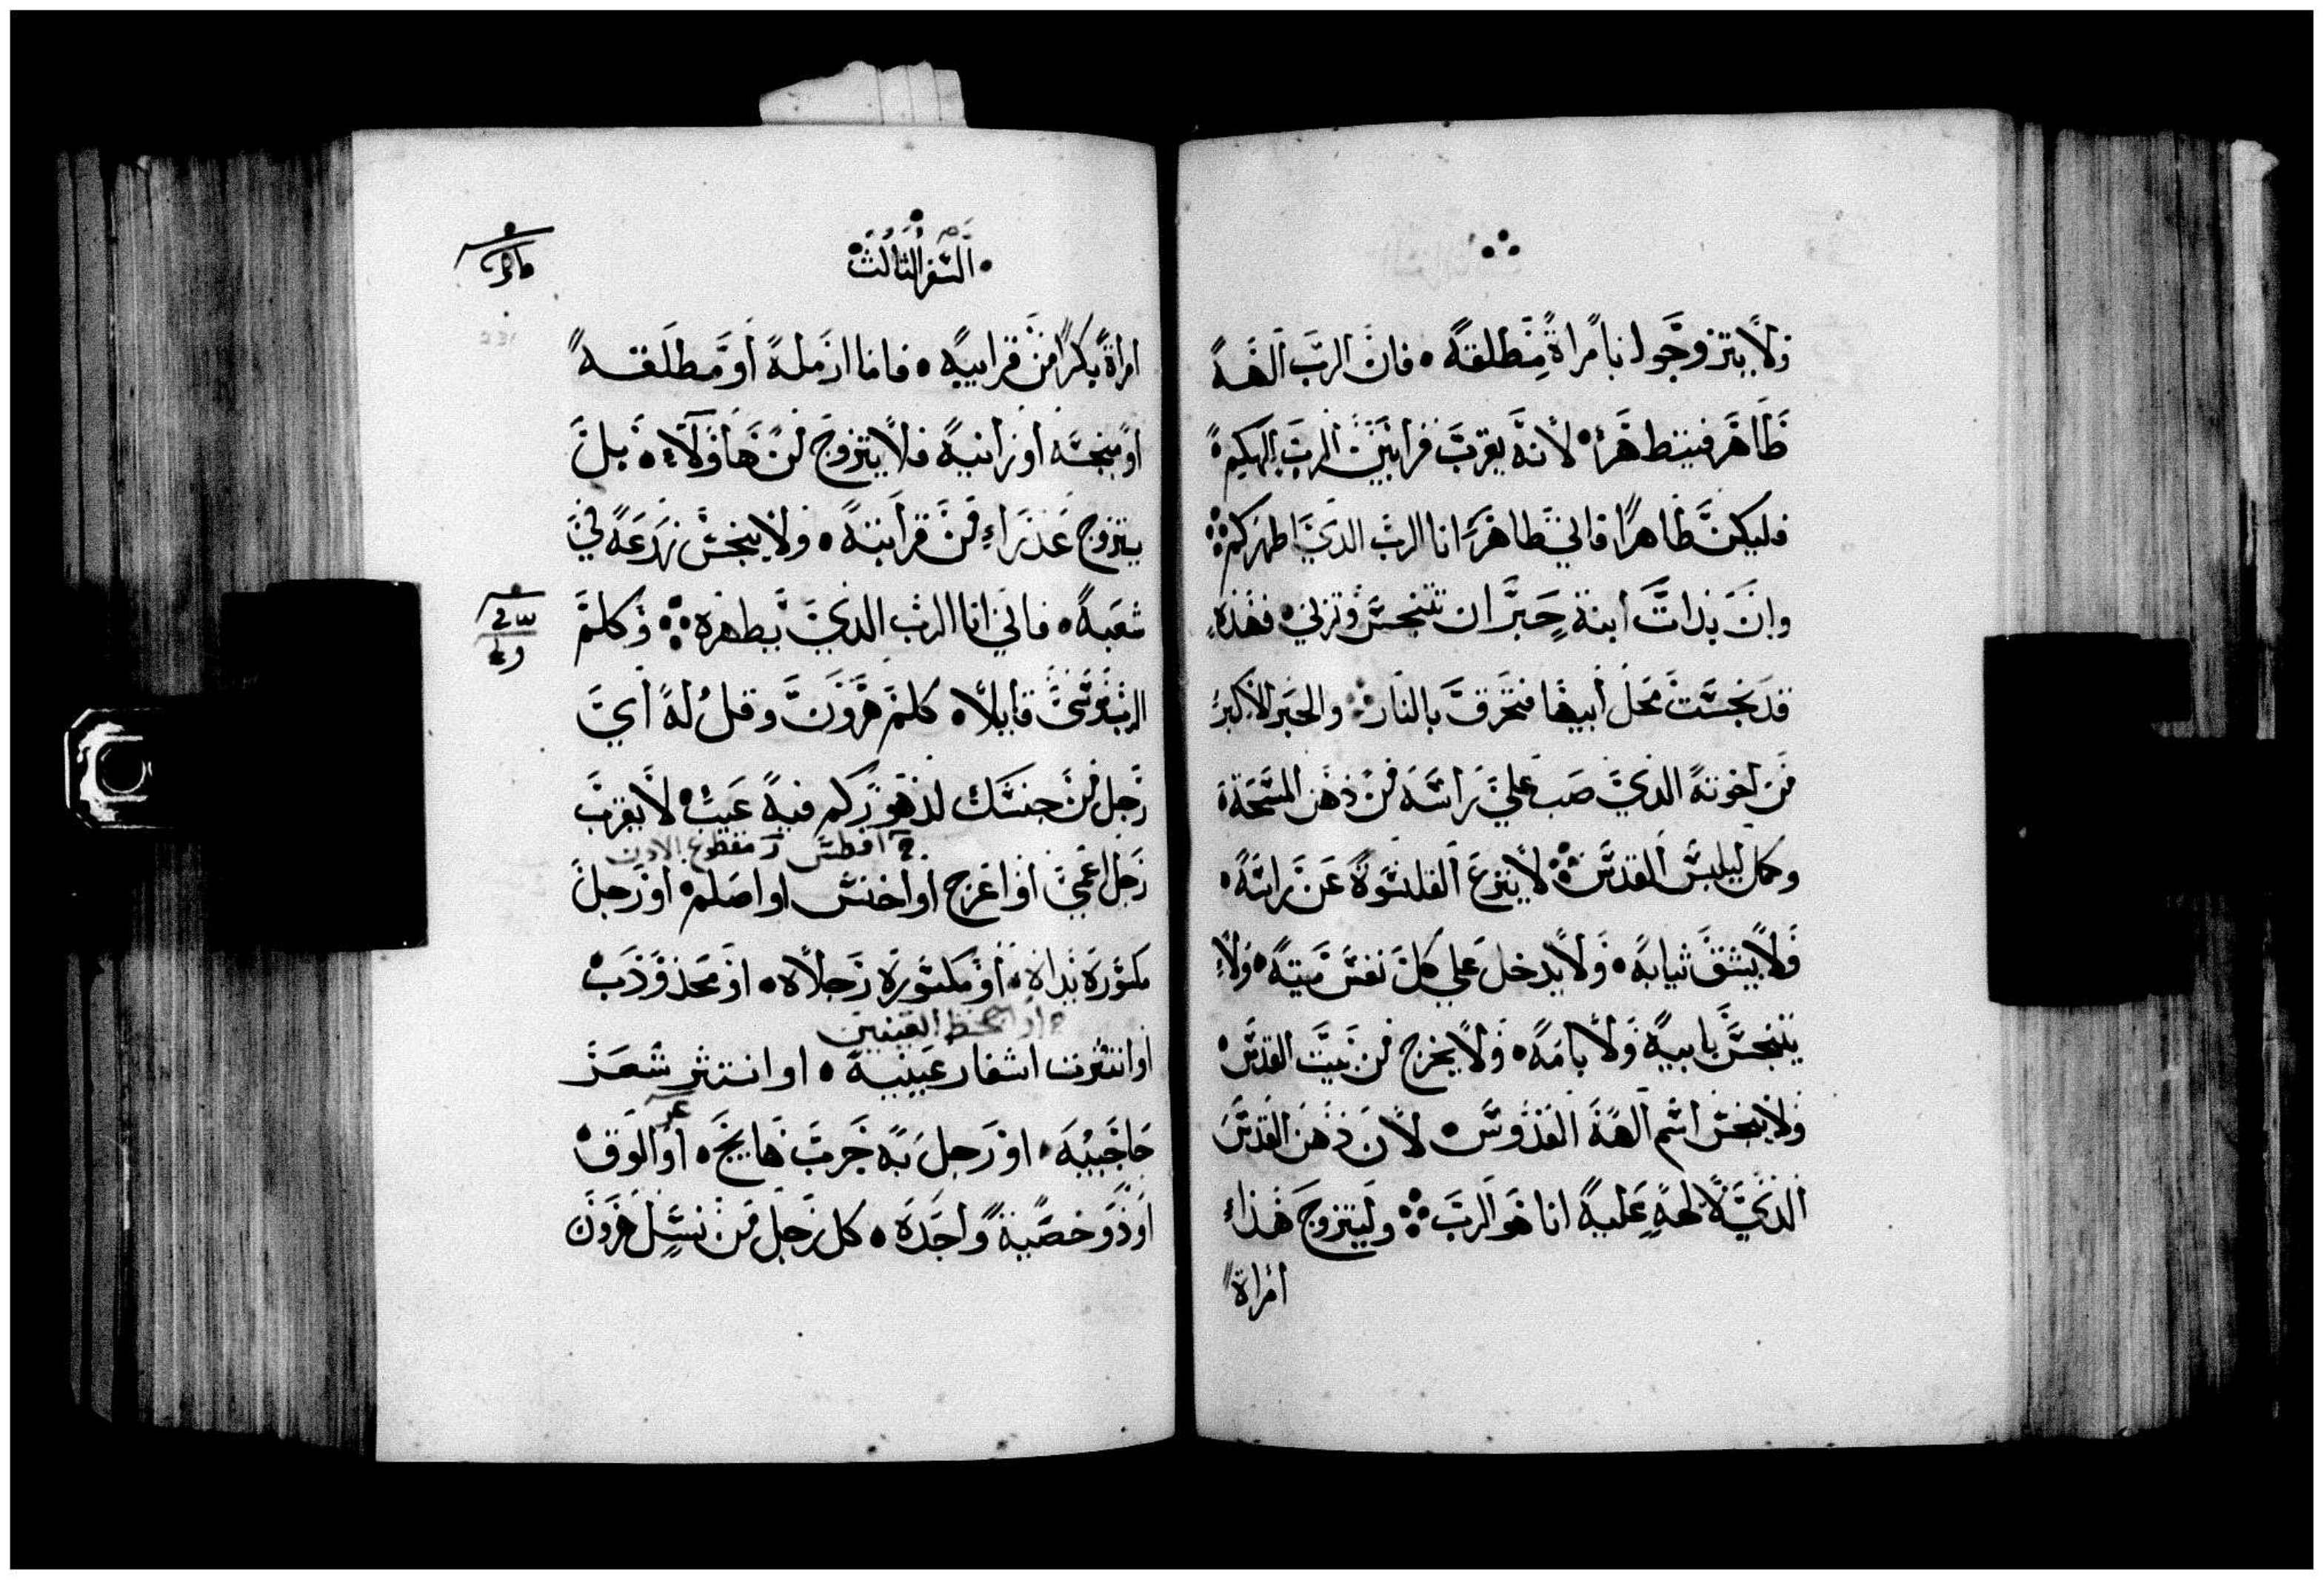 ولا يتزوجوا بامراة مطلقه • فان الرب الهه
طاهر فيتطهر • لانه يقرب قرابين الرب الهكم
فليكن طاهرا فاني طاهر انا الرب الذي اطهركم
وان بدات ابنة حبر ان تتنجس وتزني • فهذه
قد نجست محل أبيها فتحرق بالنار • والحبر الاكبر
من اخوته الذي صب علي راسه من دهن المسحة
وكمل ليلبس القدس لا ينزع القلنسوة عن راسه •
ولا يشق ثيابه • ولا يدخل علي كل نفس ميته • ولا
يتنجس بابيه ولا بامه • ولا يخرج من بيت القدس
ولا ينجس اسم الهه القدوس • لان دهن القدس
الذي لالهه عليه انا هو الرب وليتزوج هذا
امراة
السفر الثالث
امراة بكرا من قرابيه • فاما ارملة او مطلقه
او منجسه او زانيه فلا يتزوج من هاولاء • بل
يتزوج عذراء من قرابته • ولا ينجس زرعه في
شعبه • فاني انا الرب الذي يطهره وكلم
الرب موسى قايلا • كلم هرون وقل له اي
رجل من جنسك لدهوركم فيه عيب • لا يقرب
افطس مقطوع الادن
رجل اعمي او اعرج او اخنس او اصلم • او رجل
مكسورة يداه • او مكسورة رجلاه • او محدودب
العينين
او انتثرت اشفار عينيه • او انتثر شعر
حاجبيه • او رجل به جرب هايج • او الوق
او ذو خصية واحده • كل رجل من نسل هرون